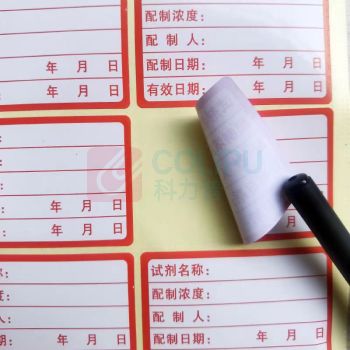 配制浓度：
配 制 人：
年 月 日
配制日期： 年 月 日
年 月 日
有效日期： 年 月 日
年 月 日
年 月 日
COLIPU
科力
试剂名称：
配制浓度：
配 制 人：
年 月 日
配制日期： 年 月 日